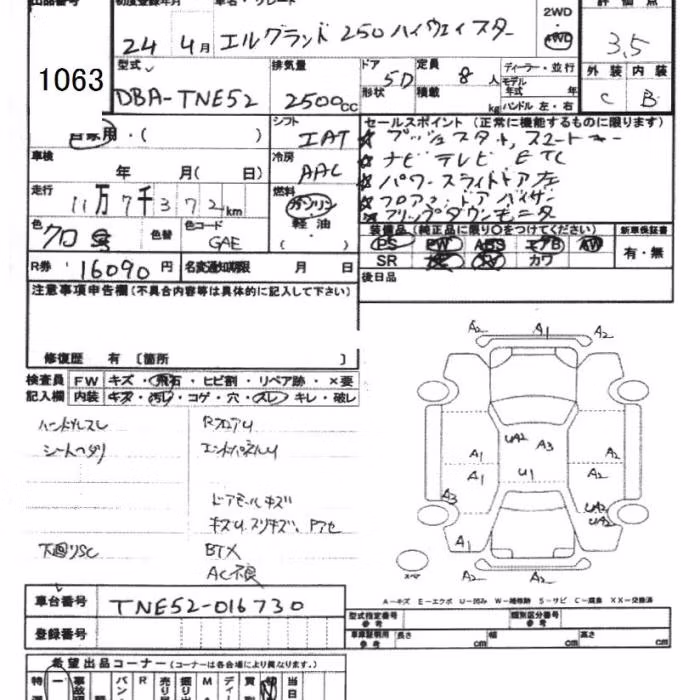 出品番号 初度登録年月 車名・グレード 2WD ・ 4WD 評価点
24年 4月 エルグランド 250 ハイウェイスター 3.5
1063 型式 排気量 ドア 定員 ディーラー・並行 外装 内装
DBA-TNE52 2500cc 5D 8人 モデル年式 年 C B
形状 積載 kg ハンドル 左・右
自家用・( ) シフト セールスポイント (正常に機能するものに限ります)
IAT ☆ プッシュスタート, スマートキー
車検 年 月( 日) 冷房 ☆ ナビ テレビ ETC
AAC ☆ パワースライドドア左
走行 11万7千372km 燃料 ☆ フロアマット ドアバイザー
ガソリン・軽油・( ) ☆ フリップダウンモニタ
色 色替 色コード 装備品 (純正品に限り○をつけてください) 新車保証書
クロ GAE PS PW ABS エアB AW 有・無
SR カワ
R券 16090円 名変通知期限 月 日 後日品
注意事項申告欄 (不具合内容等は具体的に記入して下さい)
修復歴 有 〔箇所 〕
検査員 FW キズ・飛石・ヒビ割・リペア跡・×要
記入欄 内装 キズ・汚レ・コゲ・穴・スレ・キレ・破レ
ハンドルスレ RフロアU
シートヘタリ エンドパネルU
ドアモールキズ
キズU, スリキズ, アセ
下廻りSC BTX
AC不良
A2 A1 A2
UA2 A3
A1 A2
A1 U1 A2
A3 UA2
UA2
A1
スペア A2 A2
A－キズ E－エクボ U－凹み W－補修跡 S－サビ C－腐食 XX－交換済
車台番号 TNE52-016730
型式指定番号 参考 類別区分番号 参考
登録番号 車庫証明用 参考 長さ cm 幅 cm 高さ cm
希望出品コーナー (コーナーは各会場により異なります。)